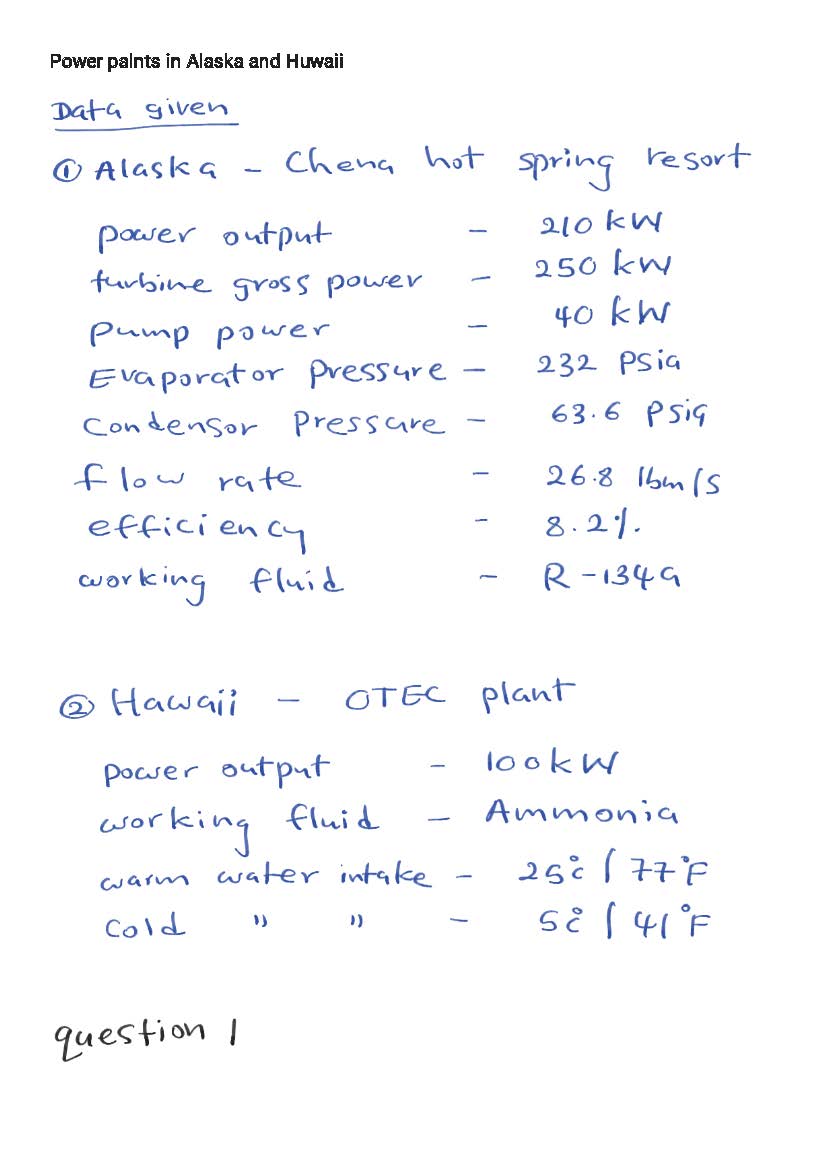 Power palnts in Alaska and Huwaii
Data given
① Alaska - Chena hot spring resort
power output - 210 kW
turbine gross power - 250 kW
Pump power - 40 kW
Evaporator Pressure - 232 Psia
Condensor Pressure - 63.6 Psia
flow rate - 26.8 lbm/s
efficiency - 8.2%
working fluid - R-134a
② Hawaii - OTEC plant
power output - 100kW
working fluid - Ammonia
warm water intake - 25°C / 77°F
Cold " " - 5°C / 41°F
question 1